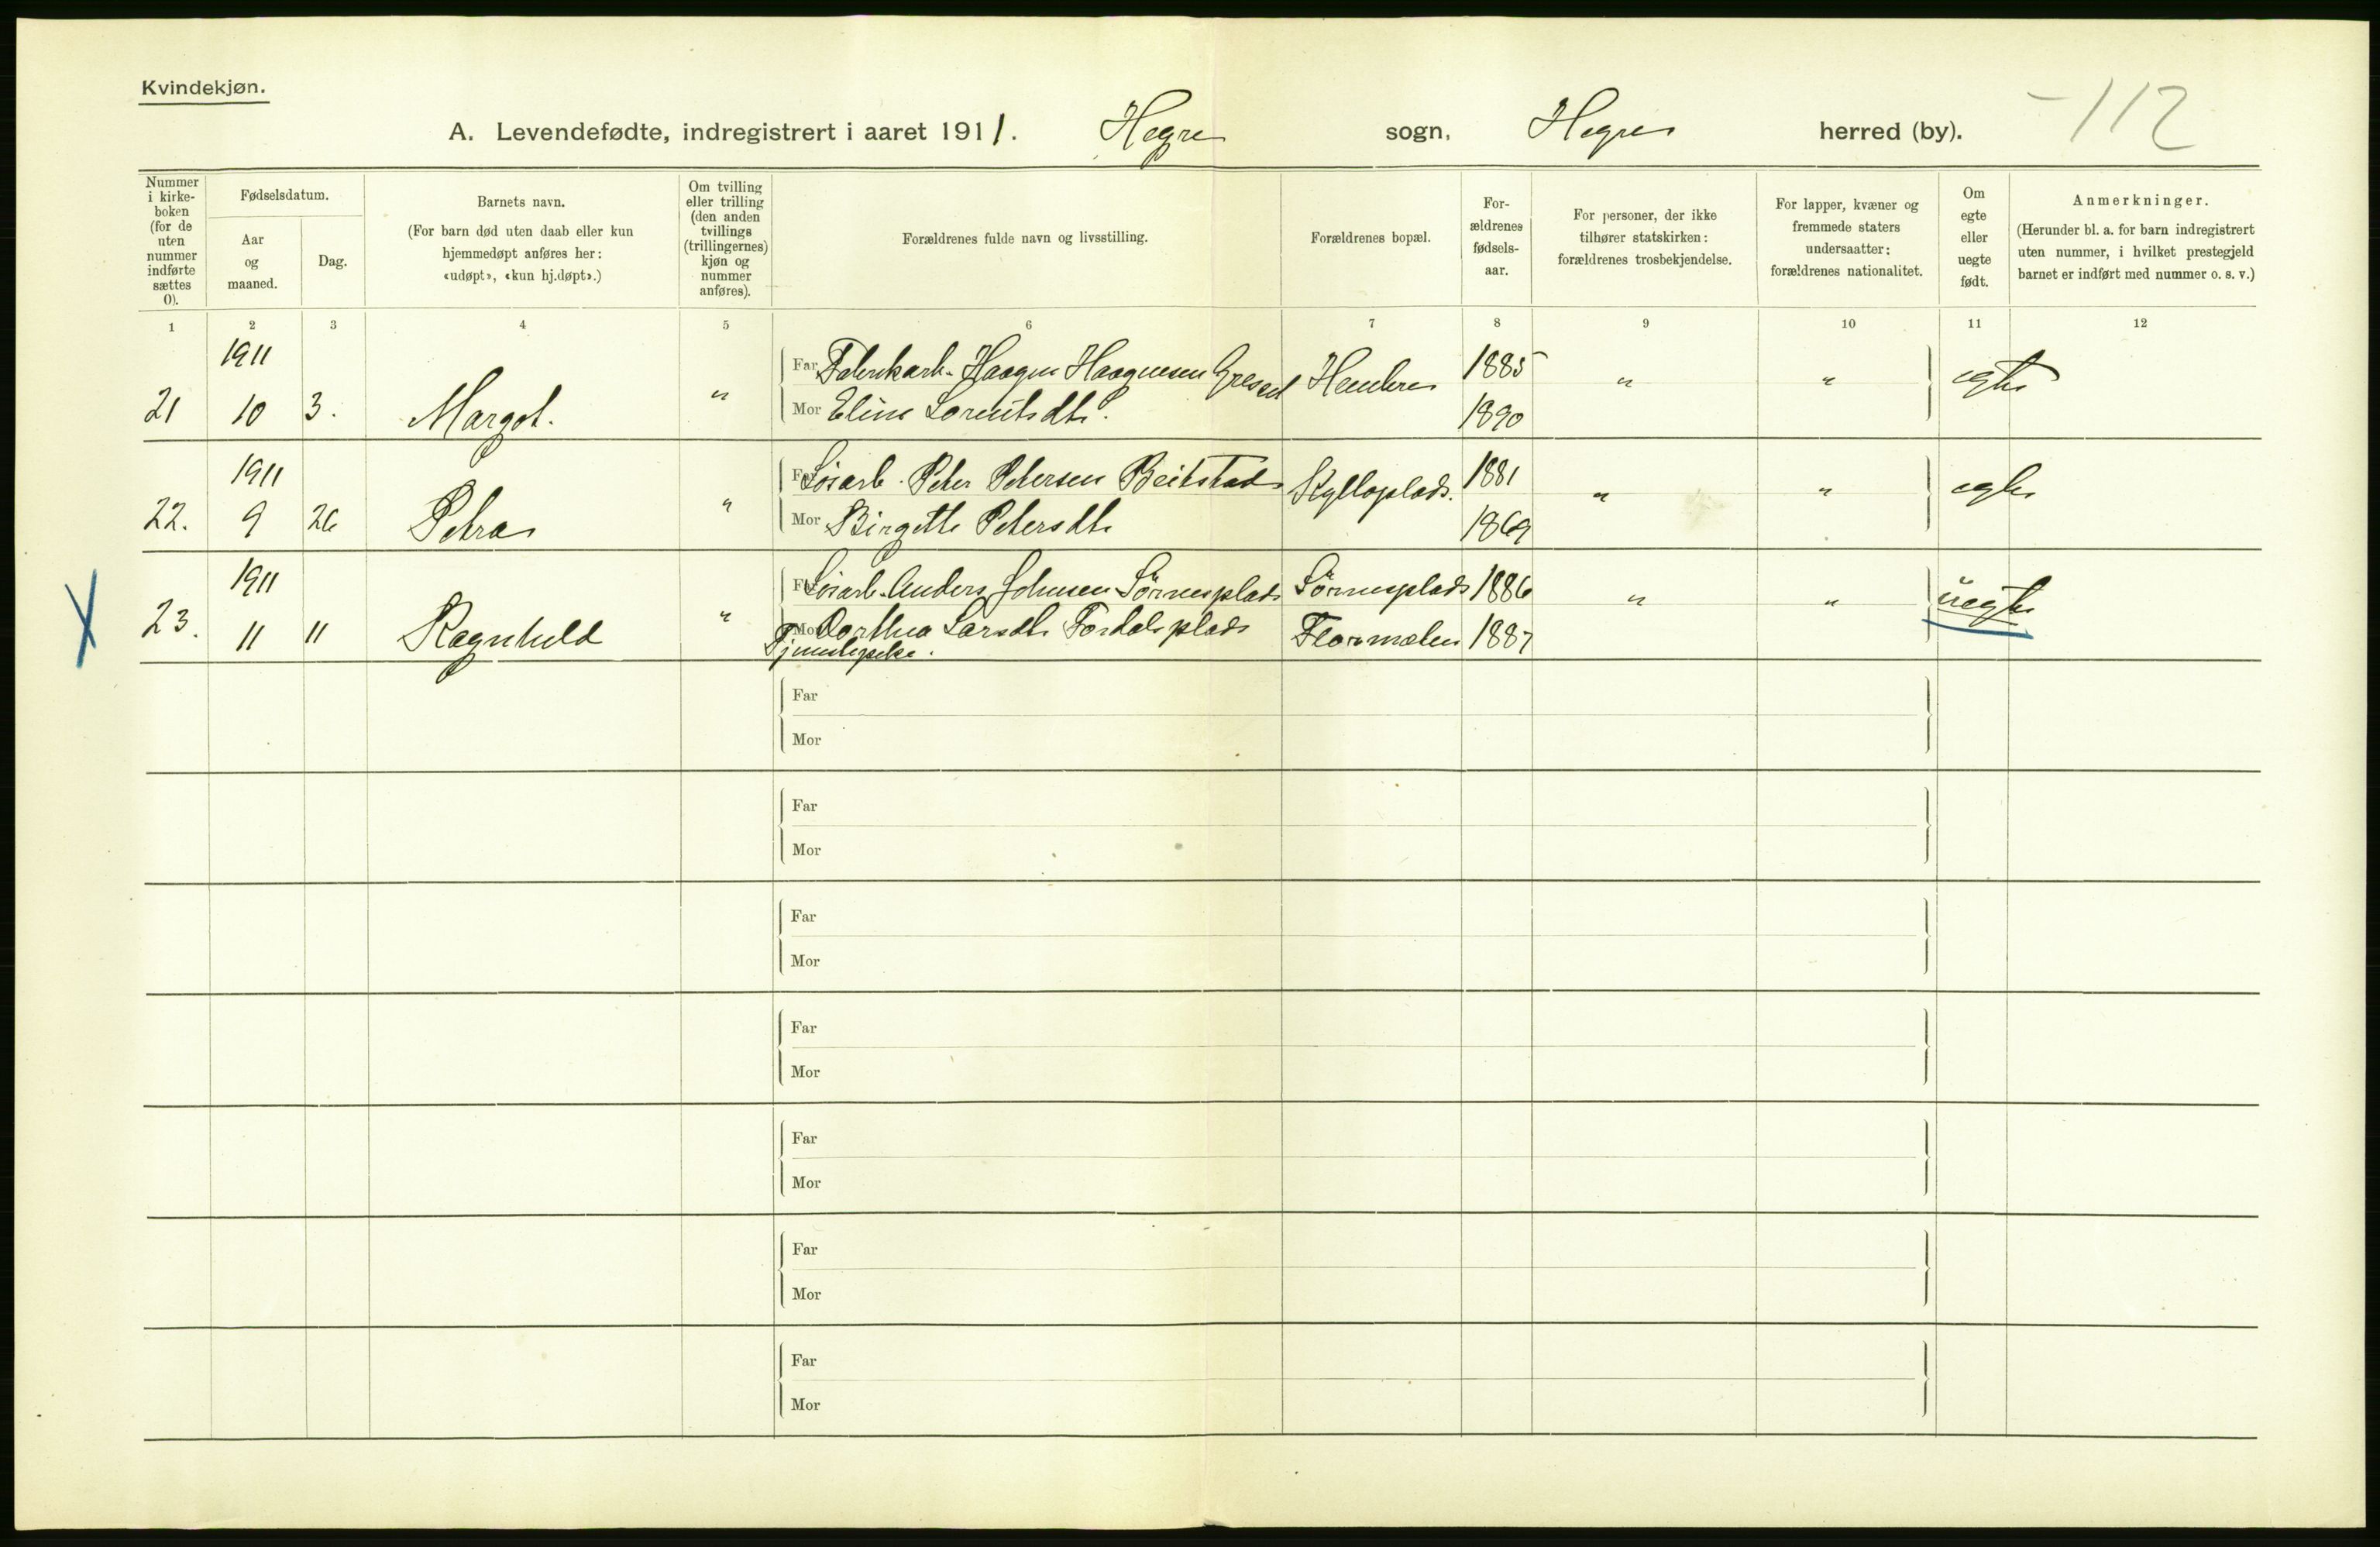 Kvindekjøn.
A. Levendefødte, indregistrert i aaret 1911. Hegre sogn, Hegre herred (by). -112
Nummer i kirke-boken (for de uten nummer indførte sættes 0).
Fødselsdatum.
Aar og maaned.
Dag.
Barnets navn.
(For barn død uten daab eller kun hjemmedøpt anføres her: «udøpt», «kun hj.døpt».)
Om tvilling eller trilling (den anden tvillings (trillingernes) kjøn og nummer anføres).
Forældrenes fulde navn og livsstilling.
Forældrenes bopæl.
For-ældrenes fødsels-aar.
For personer, der ikke tilhører statskirken: forældrenes trosbekjendelse.
For lapper, kvæner og fremmede staters undersaatter: forældrenes nationalitet.
Om egte eller uegte født.
Anmerkninger.
(Herunder bl. a. for barn indregistrert uten nummer, i hvilket prestegjeld barnet er indført med nummer o. s. v.)
1 2 3 4 5 6 7 8 9 10 11 12
1911
21 10 3. Margot. "
Far Fabrikarb. Haagen Haagensen Gressel Hembre 1885 " " egte
Mor Eline Lorentsdtr. 1890
1911
22. 9 26 Petra "
Far Løsarb. Peter Petersen Beitstad Kylloplads. 1881 " " egte
Mor Birgitte Petersdtr 1869
1911
23. 11 11 Ragnhild "
Far Løsarb. Anders Johnsen Sörnesplads Sörnesplads 1886 " " uegte
Mor Dorthea Larsdtr Fordalsplads Flormælen 1887
Tjenestepike.
Far
Mor
Far
Mor
Far
Mor
Far
Mor
Far
Mor
Far
Mor
Far
Mor